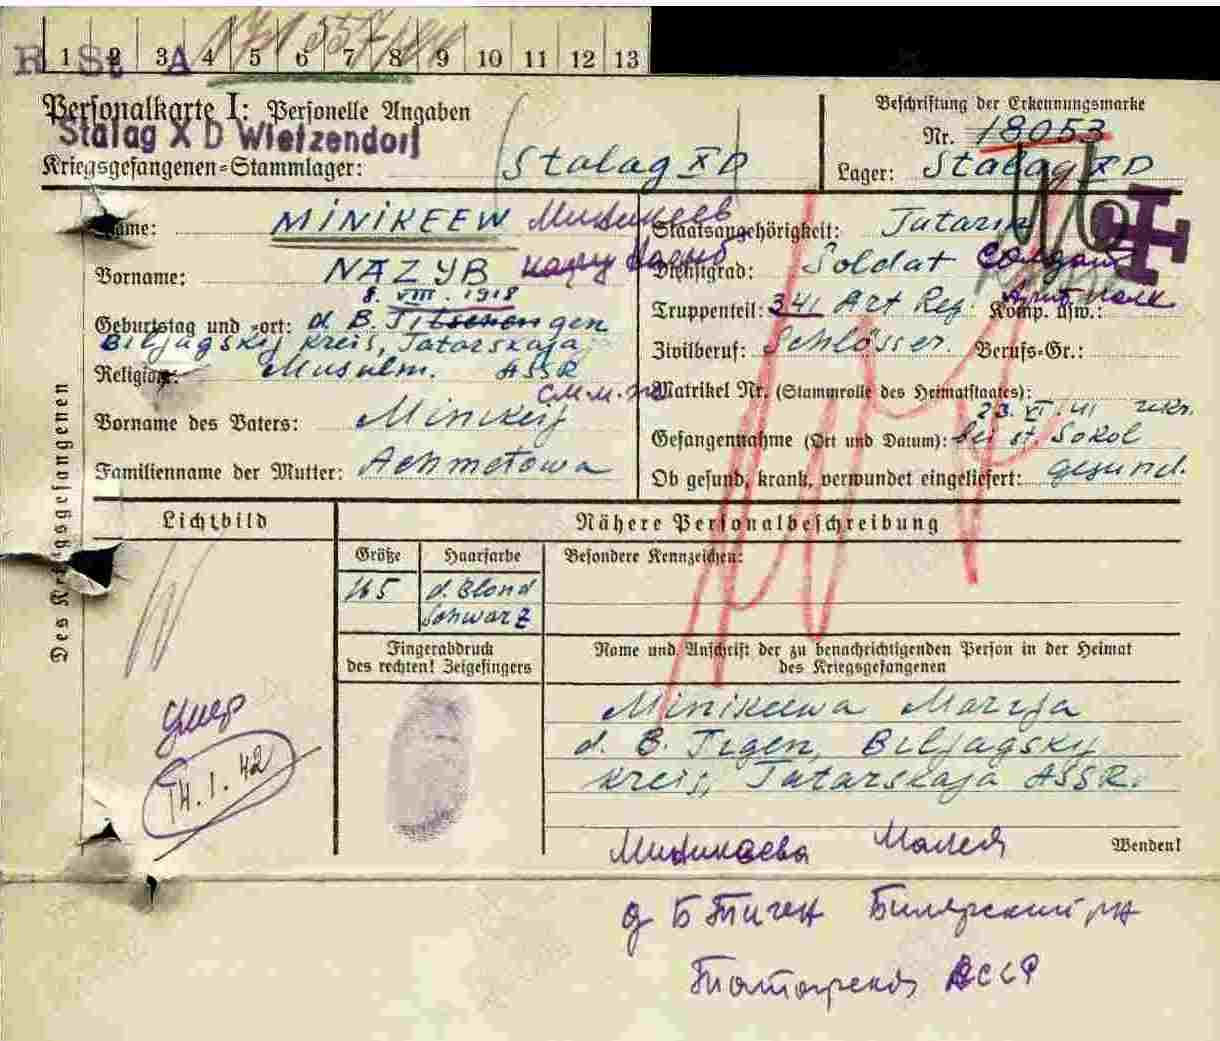 1 2 3 4 5 6 7 8 9 10 11 12 13
R St A
Personalkarte I: Personelle Angaben
Beschriftung der Erkennungsmarke
Stalag X D Wietzendorf
Nr. 18053
Kriegsgefangenen-Stammlager: Stalag XD
Lager: Stalag XD
Des Kriegsgefangenen
Name: MINIKEEW Миникеев
Vorname: NAZYB
8. VIII. 1918
Geburtstag und -ort: d. B. Tigen
Biljagskij Kreis, Tatarskaja
Religion: Muselm. ASSR
Vorname des Vaters: Minikeij
Familienname der Mutter: Achmetowa
Staatsangehörigkeit: Tatarin
Dienstgrad: Soldat Солдат
Truppenteil: 341 Art Reg. Komp. usw.: Арт. полк
Zivilberuf: Schlösser. Berufs-Gr.:
Matrikel Nr. (Stammrolle des Heimatstaates):
23. VI. 41
Gefangennahme (Ort und Datum): bei st. Sokol
Ob gesund, krank, verwundet eingeliefert: gesund.
Lichtbild
Nähere Personalbeschreibung
Größe Haarfarbe Besondere Kennzeichen:
165 d. Blond
Schwarz
Fingerabdruck
des rechten! Zeigefingers
Name und Anschrift der zu benachrichtigenden Person in der Heimat
des Kriegsgefangenen
Minikeewa
d. B. Tigen, Biljagsky
Kreis, Tatarskaja ASSR.
умер
14.1.42
Wenden!
Миникаева
д Б Тиген Билярский рн
Татарская АССР